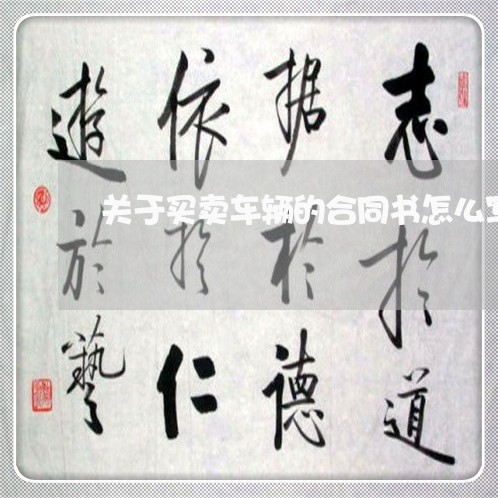 志於道
据於德
依於仁
遊於藝
关于买卖车辆的合同书怎么